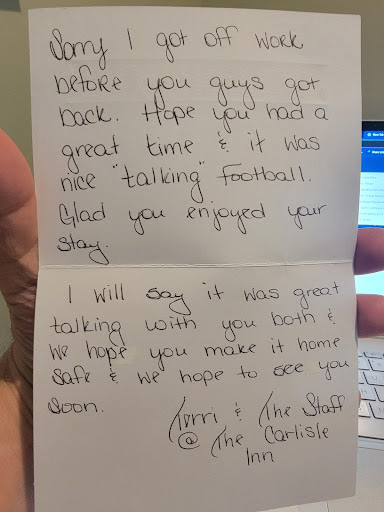 Sorry I got off work
before you guys got
back. Hope you had a
great time & it was
nice "talking" Football.
Glad you enjoyed your
stay.
I will say it was great
talking with you both &
we hope you make it home
safe & we hope to see you
soon.
Terri & The Staff
@ The Carlisle
Inn